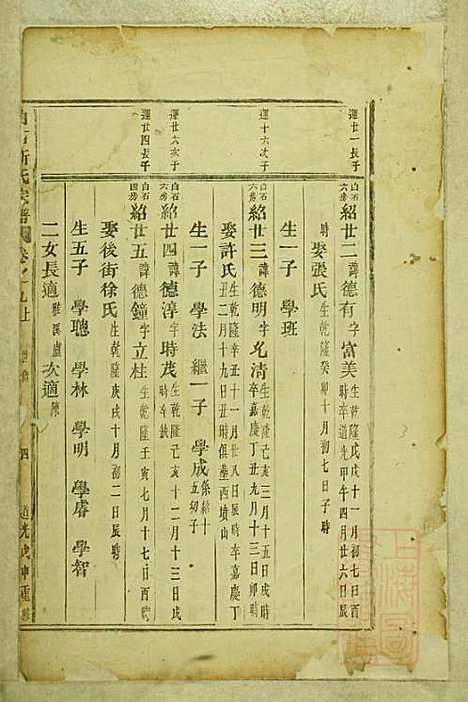 運廿一長子
運十六次子
運廿六次子
運廿四長子
白石六房 紹廿二 諱德有 字富美 生乾隆戊戌十一月初七日酉時卒道光甲午四月廿六日辰
時 娶張氏 生乾隆癸卯十月初七日子時
生一子 學班
白石六房 紹廿三 諱德明 字允清 生乾隆己亥三月十五日戌時卒嘉慶丁丑九月十三日卯時
娶許氏 生乾隆辛丑十一月廿八日辰時卒嘉慶丁丑二月十九日丑時俱塟西墳山
生一子 學法 繼一子 學成 係紹十五幼子
白石六房 紹廿四 諱德淳 字時茂 生乾隆己亥十二月十三日戌時卒
白石四房 紹廿五 諱德鐘 字立柱 生乾隆壬寅七月十七日酉時
娶後街徐氏 生乾隆庚戌十月初二日辰時
生五子 學聰 學林 學明 學膚 學智
二女長適 雅溪盧 次適 陳
白石 氏宗譜 卷之九 四 道光戊申重修